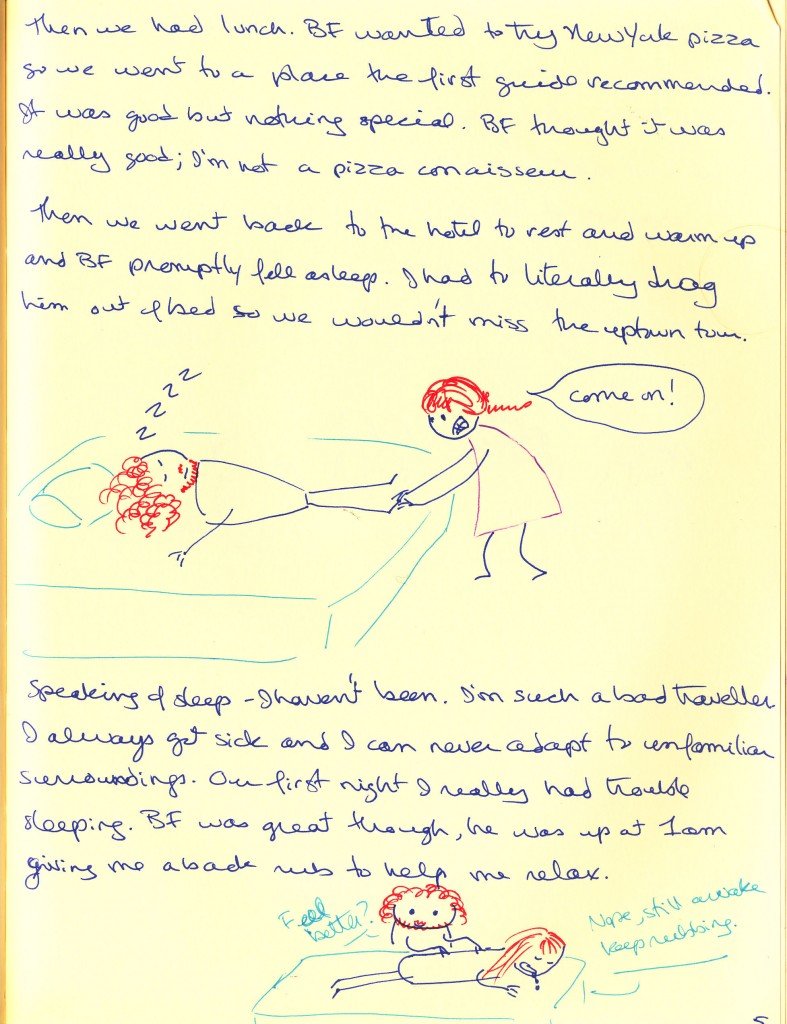 Then we had lunch. BF wanted to try New York pizza
so we went to a place the first guide recommended.
It was good but nothing special. BF thought it was
really good; I'm not a pizza conaisseur.
Then we went back to the hotel to rest and warm up
and BF promptly fell asleep. I had to literally drag
him out of bed so we wouldn't miss the uptown tour.
z z z z
come on!
Speaking of sleep - I haven't been. I'm such a bad traveller
I always get sick and I can never adapt to unfamiliar
surroundings. Our first night I really had trouble
sleeping. BF was great though, he was up at 1am
giving me a back rub to help me relax.
Feel
better?
Nope, still awake
keep rubbing.